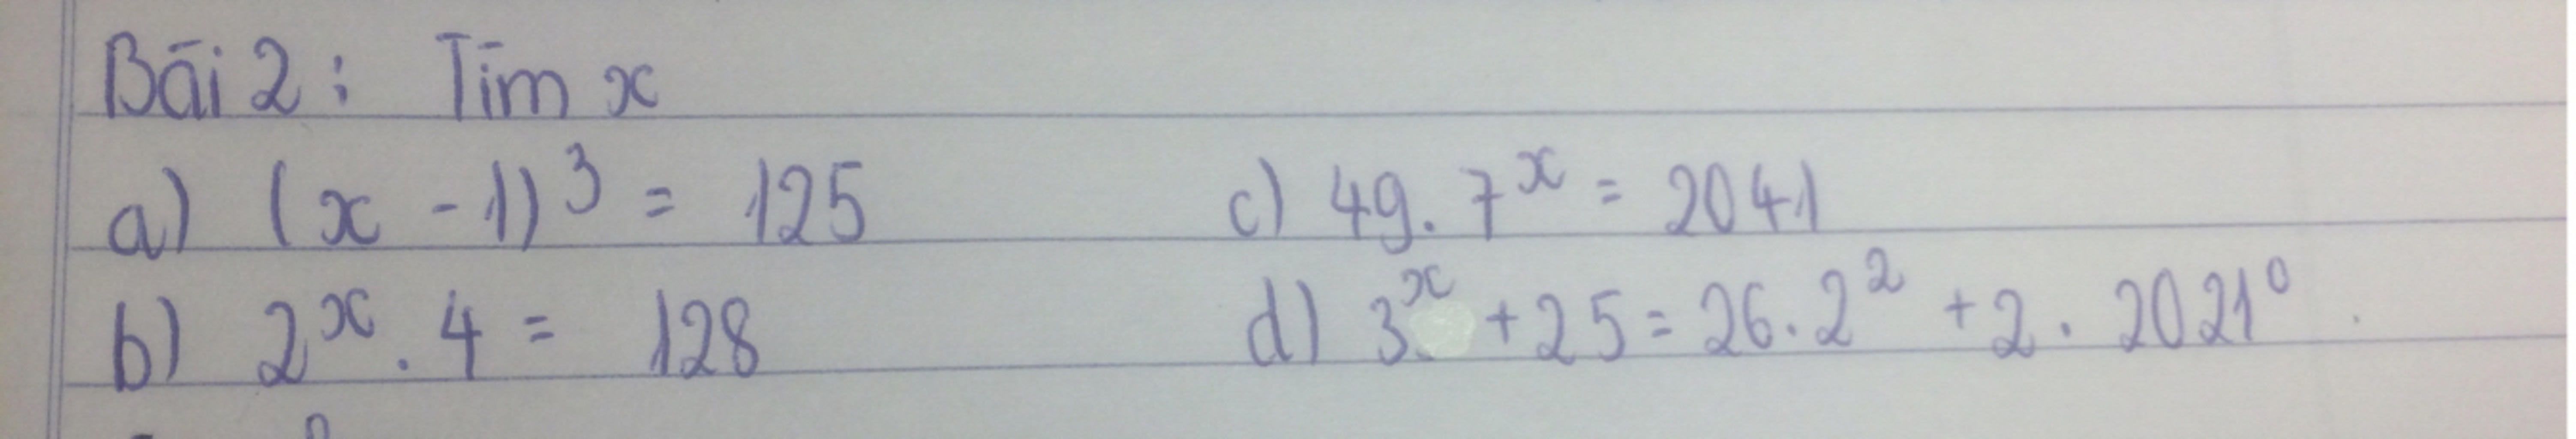 Bài 2: Tìm x
a) (x - 1)³ = 125
c) 49. 7ˣ = 2041
b) 2ˣ . 4 = 128
d) 3ˣ + 25 = 26. 2² + 2. 2021⁰.